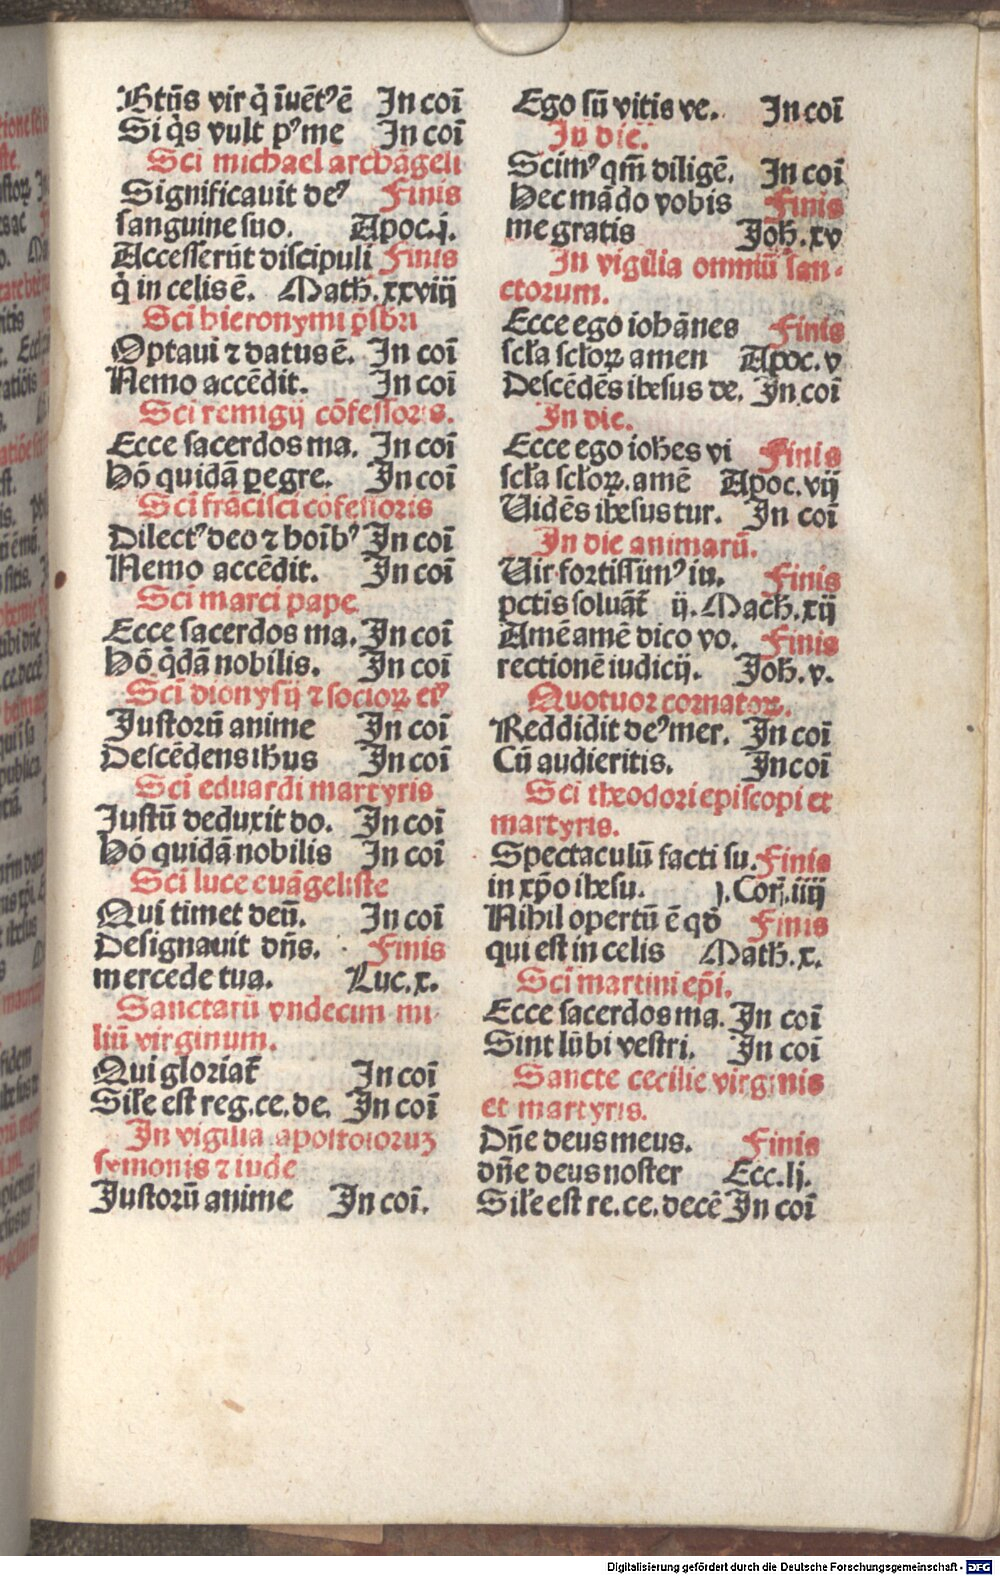 Btūs vir q̄ īuēt⁹ ē In coī
Si q̄s vult p⁹ me In coī
Sci michael archāgeli
Significauit de⁹ Finis
sanguine suo. Apoc.j.
Accesserūt discipuli Finis
q̄ in celis ē. Math.xxviij
Sci hieronymi p̄sbri
Optaui ⁊ datus ē. In coī
Nemo accēdit. In coī
Sci remigij cōfessoris.
Ecce sacerdos ma. In coī
Hō quidā ꝑegre. In coī
Sci frācisci cōfessoris
Dilect⁹ deo ⁊ hoīb⁹ In coī
Nemo accēdit. In coī
Sci marci pape
Ecce sacerdos ma. In coī
Hō q̄dā nobilis. In coī
Sci dionysij ⁊ socioꝝ ei⁹
Justorū anime In coī
Descēdens ihus In coī
Sci eduardi martyris
Justū deduxit do. In coī
Hō quidā nobilis In coī
Sci luce euāgeliste
Qui timet deū. In coī
Designauit dn̄s. Finis
mercede tua. Luc.x.
Sanctarū vndecim mi-
liū virginum.
Qui gloriat᷑ In coī
Sile est reg.ce.de. In coī
In vigilia apostoloruꝫ
symonis ⁊ iude
Justorū anime In coī.
Ego sū vitis ve. In coī
In die.
Scim⁹ qm̄ diligē. In coī
Hec mādo vobis Finis
me gratis Joh.xv
In vigilia omniū san-
ctorum.
Ecce ego iohānes Finis
scła scłoꝝ amen Apoc.v
Descēdēs ihesus de. In coī
In die.
Ecce ego iohes vi Finis
scła scłoꝝ.amē Apoc.vij
Uidēs ihesus tur. In coī
In die animarū.
Vir fortissim⁹ iu. Finis
pctis soluāt᷑ ij.Mach.xij
Amē amē dico vo. Finis
rectionē iudicij. Joh.v.
Quotuor cornatoꝝ.
Reddidit de⁹ mer. In coī
Cū audieritis. In coī
Sci theodori episcopi et
martyris.
Spectaculū facti su. Finis
in xp̄o ihesu. j.Cor.iiij
Nihil opertū ē qd̄ Finis
qui est in celis Math.x.
Sci martini ep̄i.
Ecce sacerdos ma. In coī
Sint lūbi vestri. In coī
Sancte cecilie virginis
et martyris.
Dn̄e deus meus. Finis
dn̄e deus noster Ecc.lj.
Sile est re.ce.decē In coī
Digitalisierung gefördert durch die Deutsche Forschungsgemeinschaft - DFG